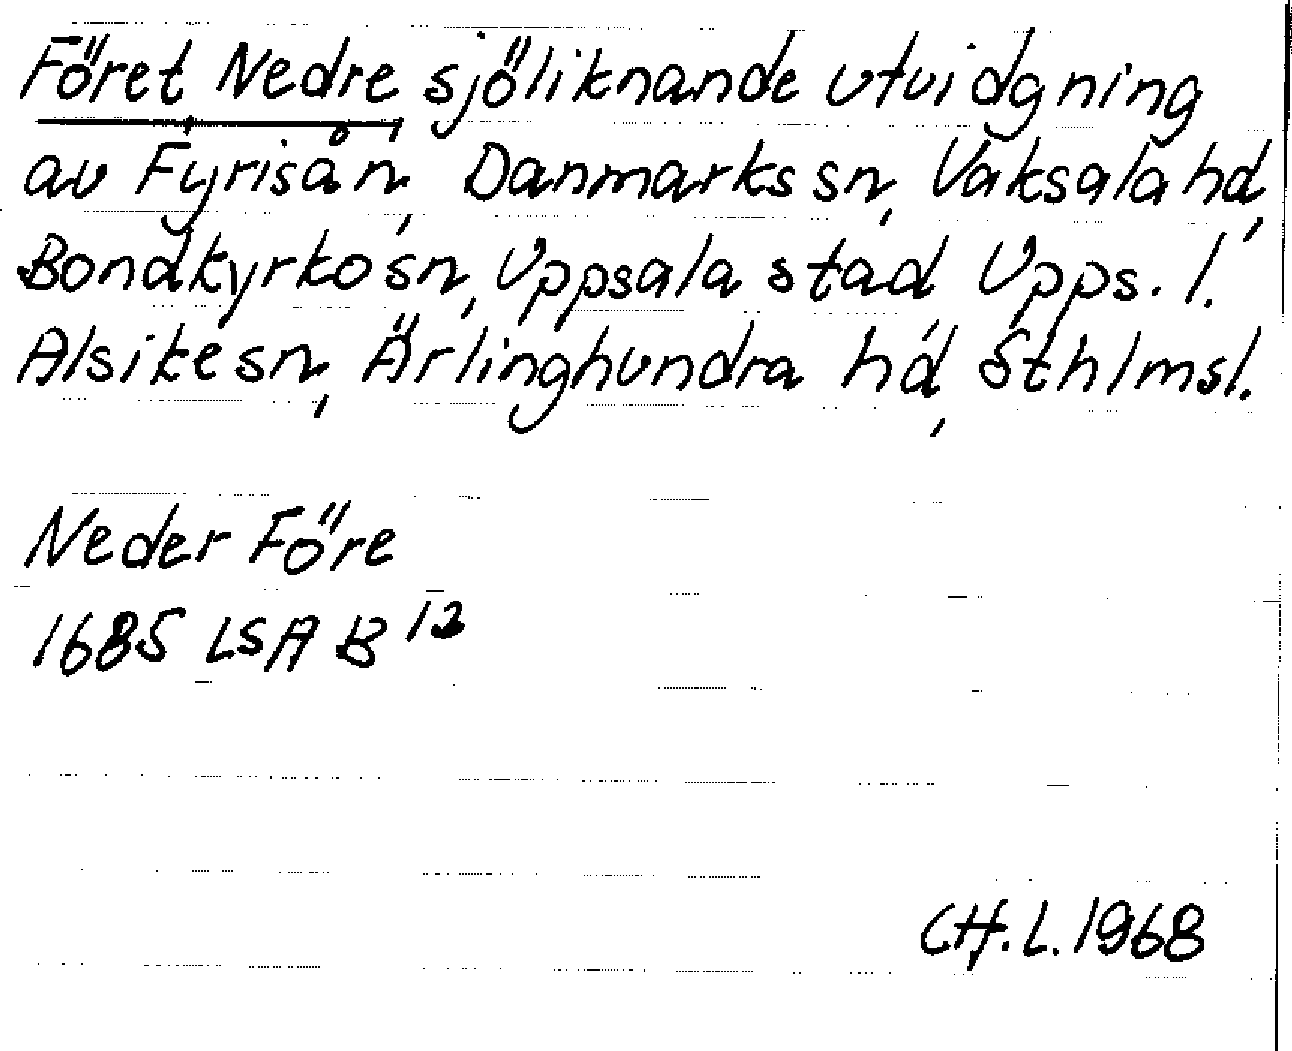 Föret Nedre sjöliknande utvidgning
av Fyrisån, Danmarks sn, Vaksala hd,
Bondkyrko sn, Uppsala stad Upps. l.
Alsike sn, Ärlinghundra hd, Sthlmsl.
Neder Före
1685 LSA B 12
CH. L. 1968